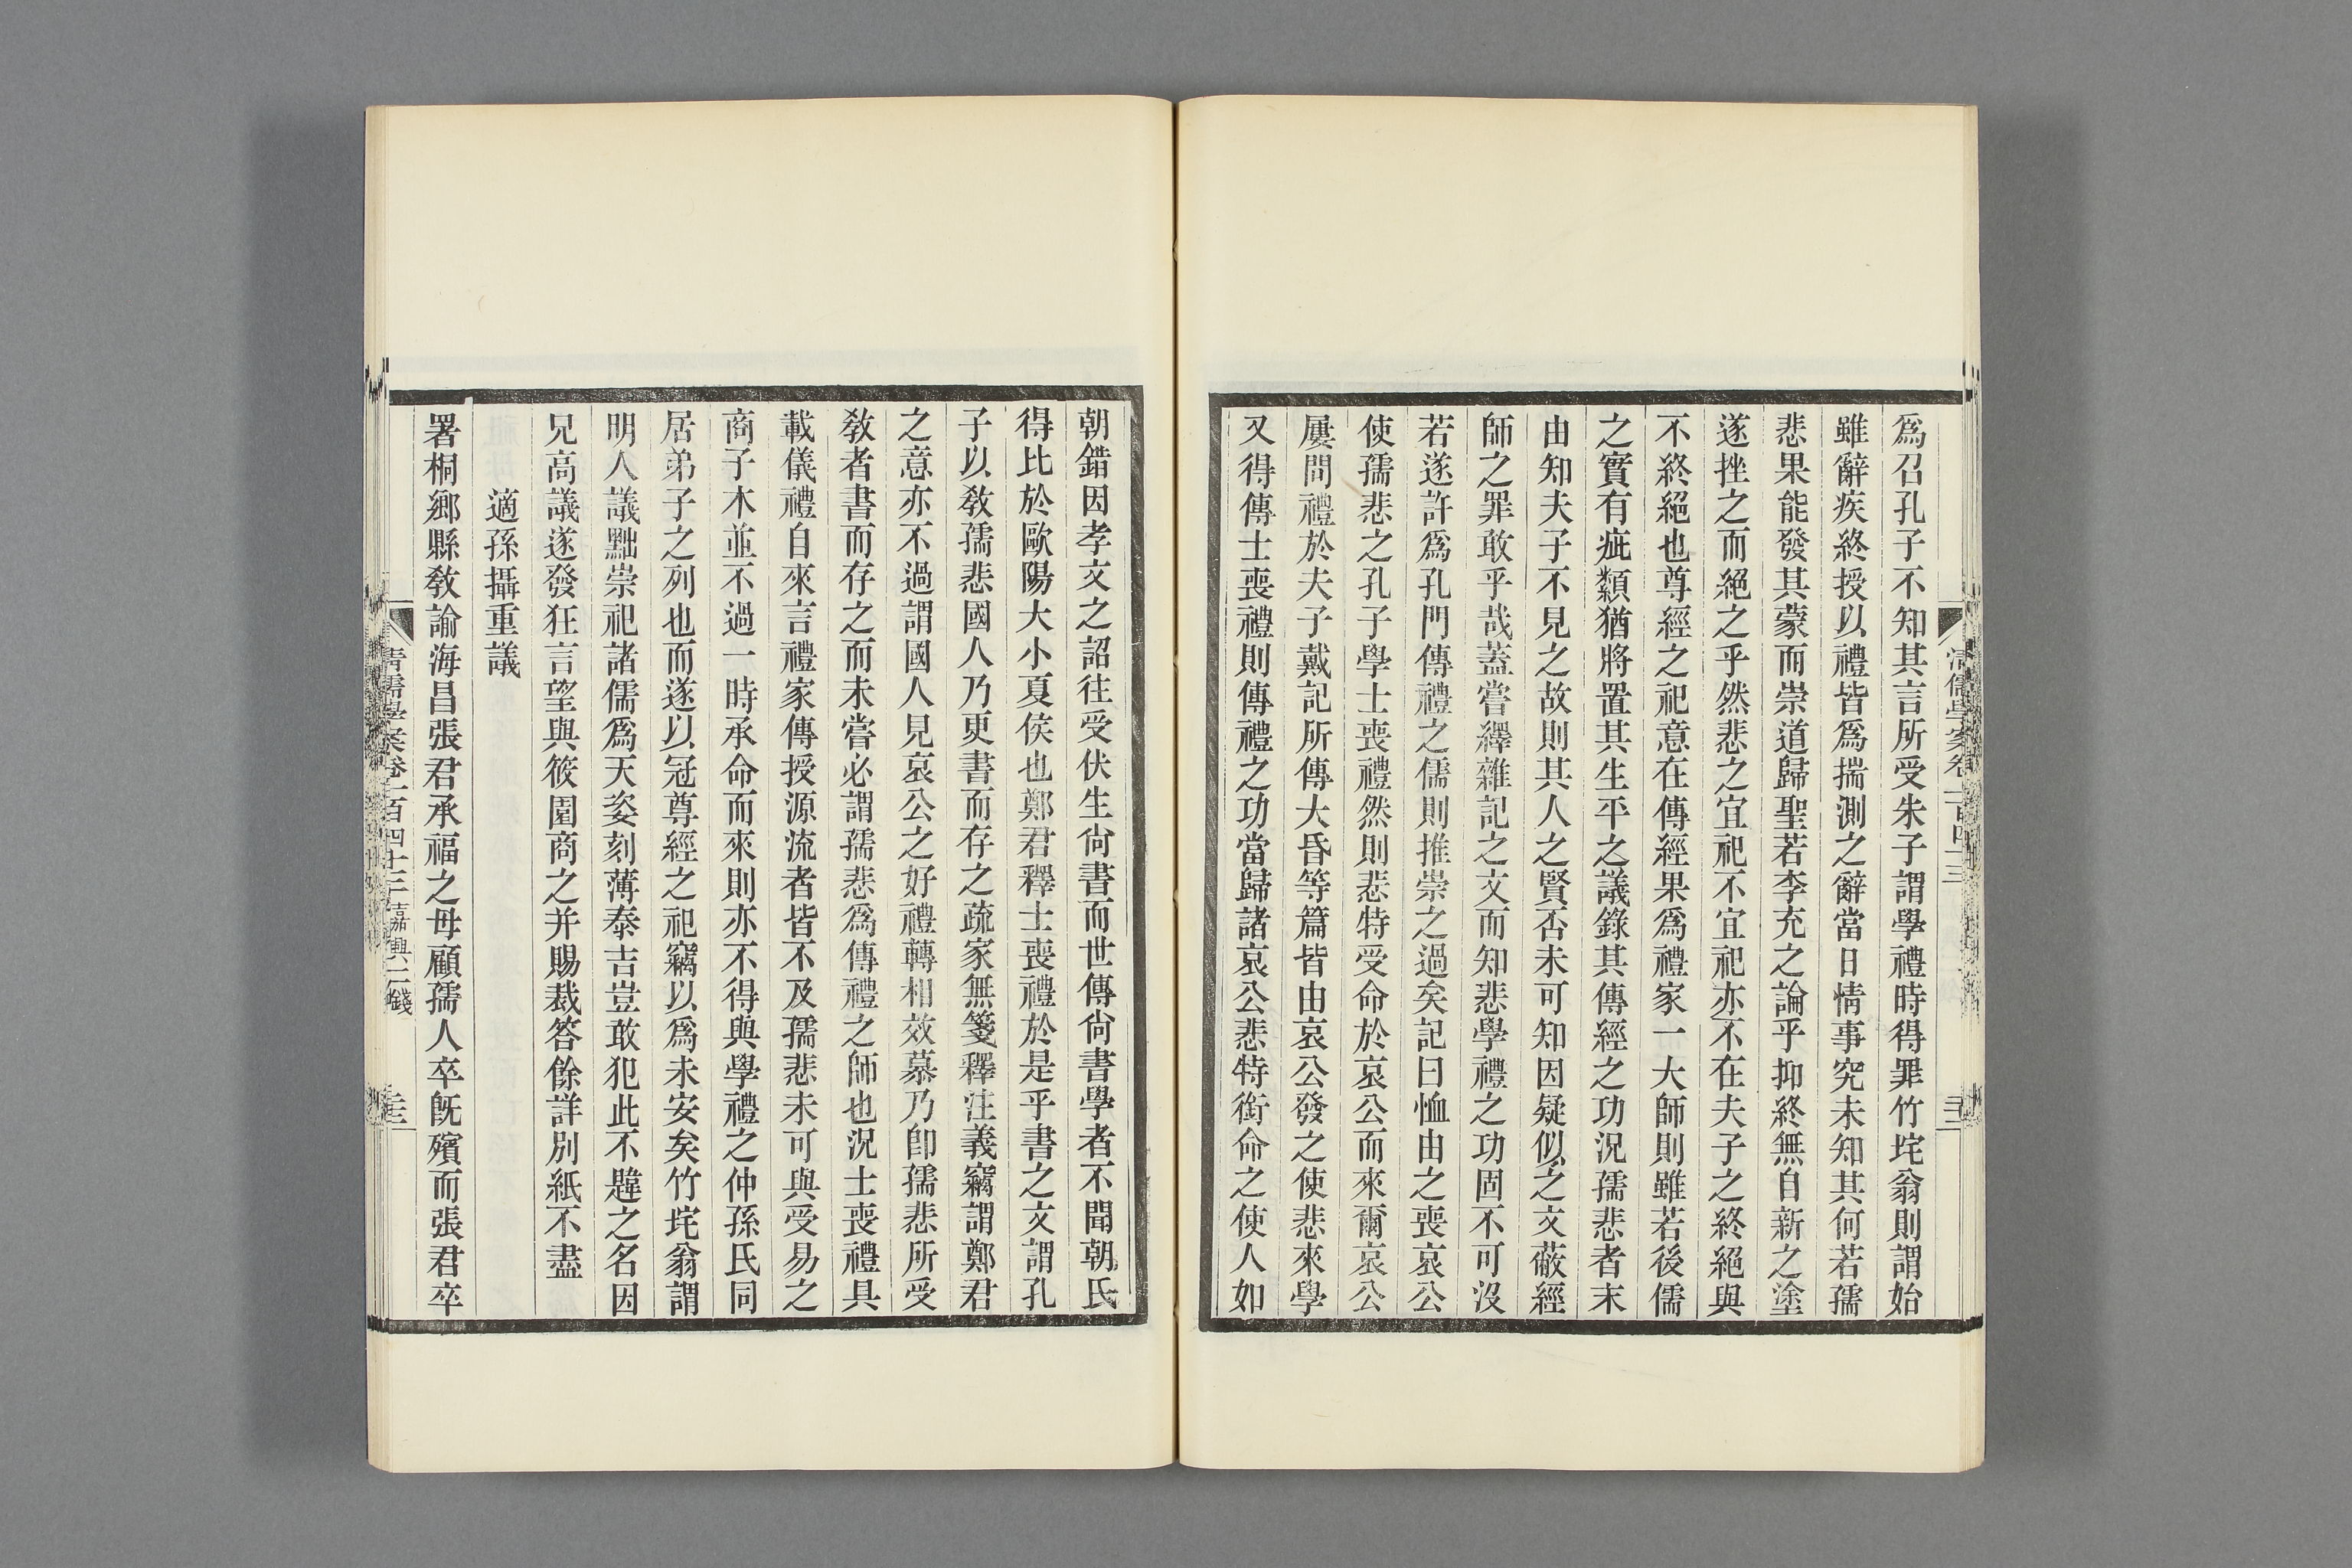 爲召孔子不知其言所受朱子謂學禮時得罪竹垞翁則謂始
雖辭疾終授以禮皆爲揣測之辭當日情事究未知其何若孺
悲果能發其蒙而崇道歸聖若李充之論乎抑終無自新之塗
遂挫之而絕之乎然悲之宜祀不宜祀亦不在夫子之終絕與
不終絕也尊經之祀意在傳經果爲禮家一大師則雖若後儒
之實有疵纇猶將置其生平之議錄其傳經之功況孺悲者末
由知夫子不見之故則其人之賢否未可知因疑似之文蔽經
師之罪敢乎哉蓋嘗繹雜記之文而知悲學禮之功固不可沒
若遂許爲孔門傳禮之儒則推崇之過矣記曰恤由之喪哀公
使孺悲之孔子學士喪禮然則悲特受命於哀公而來爾哀公
屢問禮於夫子戴記所傳大昏等篇皆由哀公發之使悲來學
又得傳士喪禮則傳禮之功當歸諸哀公悲特銜命之使人如
朝錯因孝文之詔往受伏生尙書而世傳尙書學者不聞朝氏
得比於歐陽大小夏侯也鄭君釋士喪禮於是乎書之文謂孔
子以敎孺悲國人乃更書而存之疏家無箋釋注義竊謂鄭君
之意亦不過謂國人見哀公之好禮轉相效慕乃卽孺悲所受
敎者書而存之而未嘗必謂孺悲爲傳禮之師也況士喪禮具
載儀禮自來言禮家傳授源流者皆不及孺悲未可與受易之
商子木並不過一時承命而來則亦不得與學禮之仲孫氏同
居弟子之列也而遂以冠尊經之祀竊以爲未安矣竹垞翁謂
明人議黜崇祀諸儒爲天姿刻薄泰吉豈敢犯此不韙之名因
兄高議遂發狂言望與筱園商之并賜裁答餘詳別紙不盡
適孫攝重議
署桐鄉縣敎諭海昌張君承福之母顧孺人卒旣殯而張君卒
清儒學案卷一百四十三 嘉興二錢